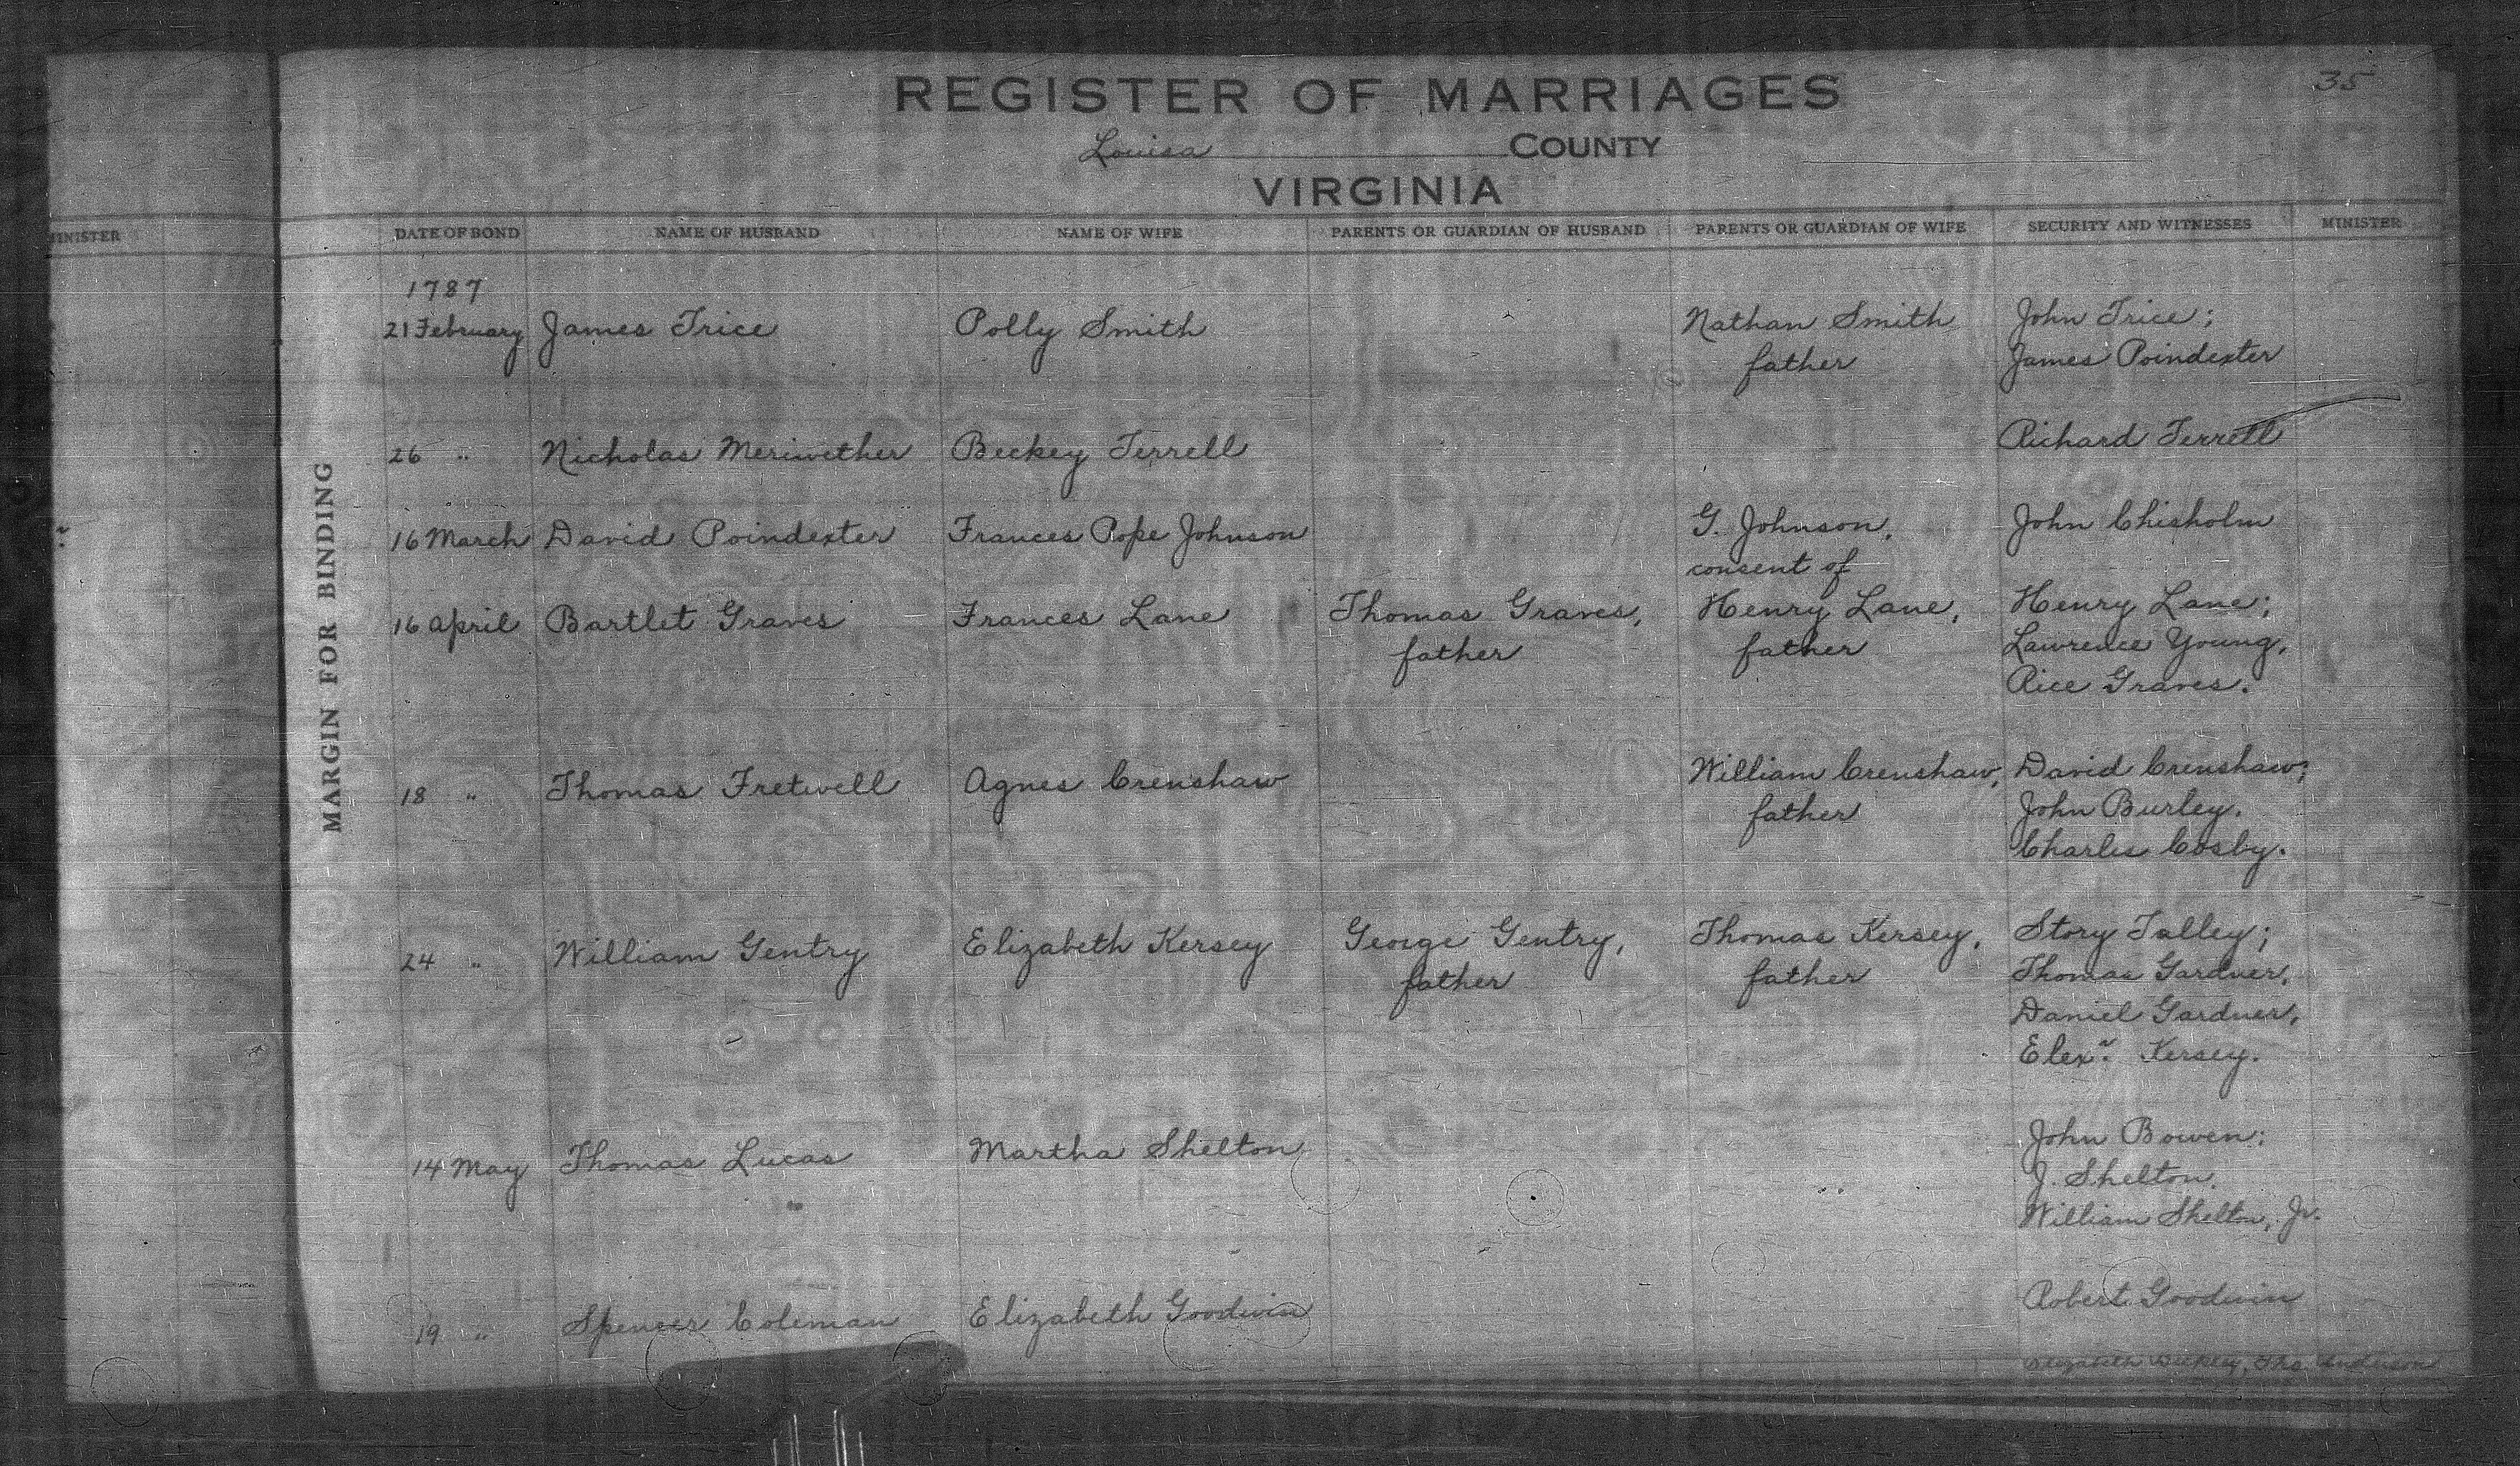 35
REGISTER OF MARRIAGES
Louisa COUNTY
VIRGINIA
MINISTER
DATE OF BOND NAME OF HUSBAND NAME OF WIFE PARENTS OR GUARDIAN OF HUSBAND PARENTS OR GUARDIAN OF WIFE SECURITY AND WITNESSES MINISTER
MARGIN FOR BINDING
1787
21 February James Trice Polly Smith Nathan Smith John Trice;
father James Poindexter
26 " Nicholas Meriwether Beckey Terrell Richard Terrell
16 March David Poindexter Frances Pope Johnson G. Johnson, John Chisholm
consent of
16 April Bartlet Graves Frances Lane Thomas Graves, Henry Lane, Henry Lane;
father father Lawrence Young,
Rice Graves.
18 " Thomas Fretwell Agnes Crenshaw William Crenshaw, David Crenshaw;
father John Burley.
Charles Cosby.
24 " William Gentry Elizabeth Kersey George Gentry, Thomas Kersey, Story Talley;
father father Thomas Gardner,
Daniel Gardner,
Elexr. Kersey.
14 May Thomas Lucas Martha Shelton John Bowen;
J. Shelton,
William Shelton, Jr.
19 " Spencer Coleman Elizabeth Goodwin Robert Goodwin